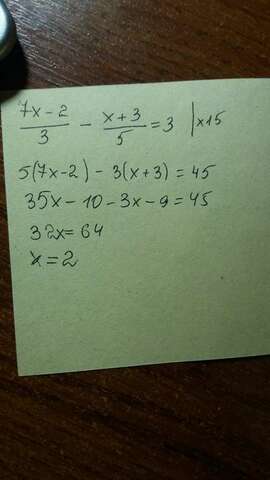 7x-2/3 - x+3/5 = 3 | x15
5(7x-2) - 3(x+3) = 45
35x - 10 - 3x - 9 = 45
32x = 64
x = 2